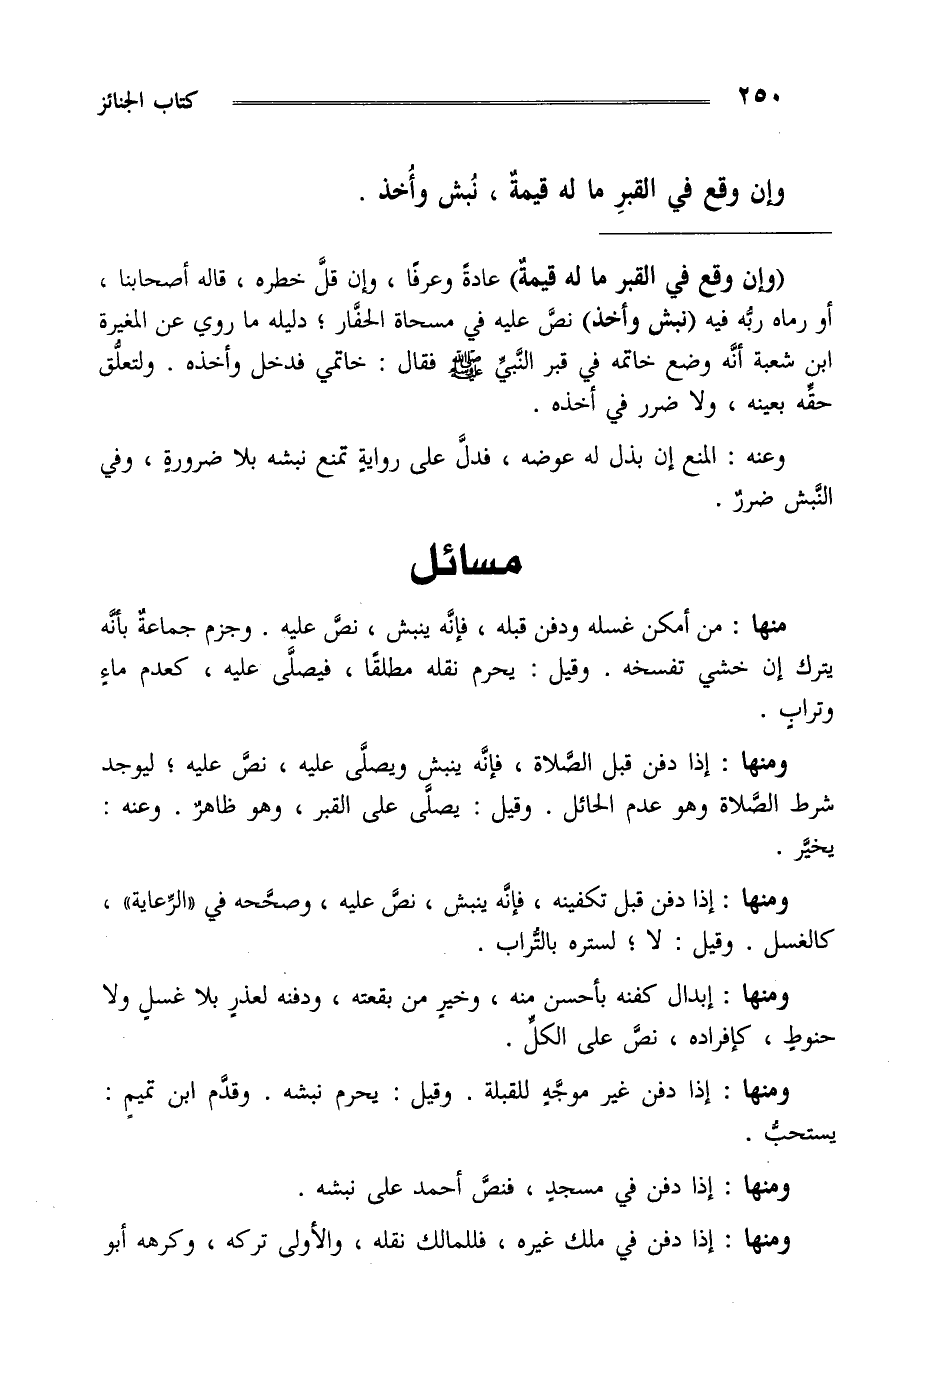 ٢٥٠ كتاب الجنائز
وإن وقع في القبرِ ما له قيمةٌ ، نُبش وأُخذ .
(وإن وقع في القبر ما له قيمةٌ) عادةً وعرفًا ، وإن قلَّ خطره ، قاله أصحابنا ،
أو رماه ربُّه فيه (نبش وأخذ) نصَّ عليه في مسحاة الحفَّار ؛ دليله ما روي عن المغيرة
ابن شعبة أنَّه وضع خاتمه في قبر النَّبيِّ ﷺ فقال : خاتمي فدخل وأخذه . ولتعلُّق
حقِّه بعينه ، ولا ضرر في أخذه .
وعنه : المنع إن بذل له عوضه ، فدلَّ على روايةٍ تمنع نبشه بلا ضرورةٍ ، وفي
النَّبش ضررٌ .
مسائل
منها : من أمكن غسله ودفن قبله ، فإنَّه ينبش ، نصَّ عليه . وجزم جماعةٌ بأنَّه
يترك إن خشي تفسخه . وقيل : يحرم نقله مطلقًا ، فيصلَّى عليه ، كعدم ماءٍ
وترابٍ .
ومنها : إذا دفن قبل الصَّلاة ، فإنَّه ينبش ويصلَّى عليه ، نصَّ عليه ؛ ليوجد
شرط الصَّلاة وهو عدم الحائل . وقيل : يصلَّى على القبر ، وهو ظاهرٌ . وعنه :
يخيَّر .
ومنها : إذا دفن قبل تكفينه ، فإنَّه ينبش ، نصَّ عليه ، وصحَّحه في «الرِّعاية» ،
كالغسل . وقيل : لا ؛ لستره بالتُّراب .
ومنها : إبدال كفنه بأحسن منه ، وخيرٍ من بقعته ، ودفنه لعذرٍ بلا غسلٍ ولا
حنوطٍ ، كإفراده ، نصَّ على الكلِّ .
ومنها : إذا دفن غير موجَّهٍ للقبلة . وقيل : يحرم نبشه . وقدَّم ابن تميمٍ :
يستحبُّ .
ومنها : إذا دفن في مسجدٍ ، فنصَّ أحمد على نبشه .
ومنها : إذا دفن في ملك غيره ، فللمالك نقله ، والأولى تركه ، وكرهه أبو